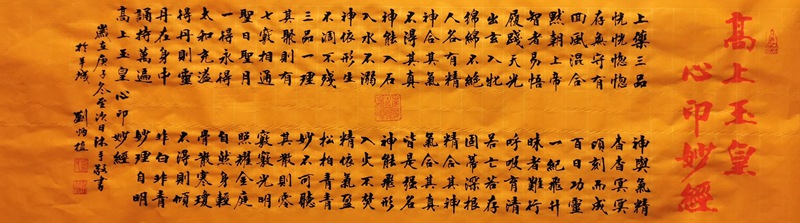 高上玉皇
心印妙經
上藥三品 神與氣精
恍恍惚惚 杳杳冥冥
存無守有 頃刻而成
回風混合 百日功靈
默朝上帝 一紀飛升
智者易悟 昧者難行
履踐天光 呼吸育清
出玄入牝 若亡若存
綿綿不絕 固蒂深根
人各有精 精合其神
神合其氣 氣合其真
不得其真 皆是強名
神能入石 神能飛形
入水不溺 入火不焚
神依形生 精依氣盈
不凋不殘 松柏青青
三品一理 妙不可聽
其聚則有 其散則零
七竅相通 竅竅光明
聖日聖月 照耀金庭
一得永得 自然身輕
太和充溢 骨散寒瓊
得丹則靈 不得則傾
丹在身中 非白非青
誦持萬遍 妙理自明
高上玉皇心印妙經
歲在庚子冬至次日沐手敬書
於羊城 劉植